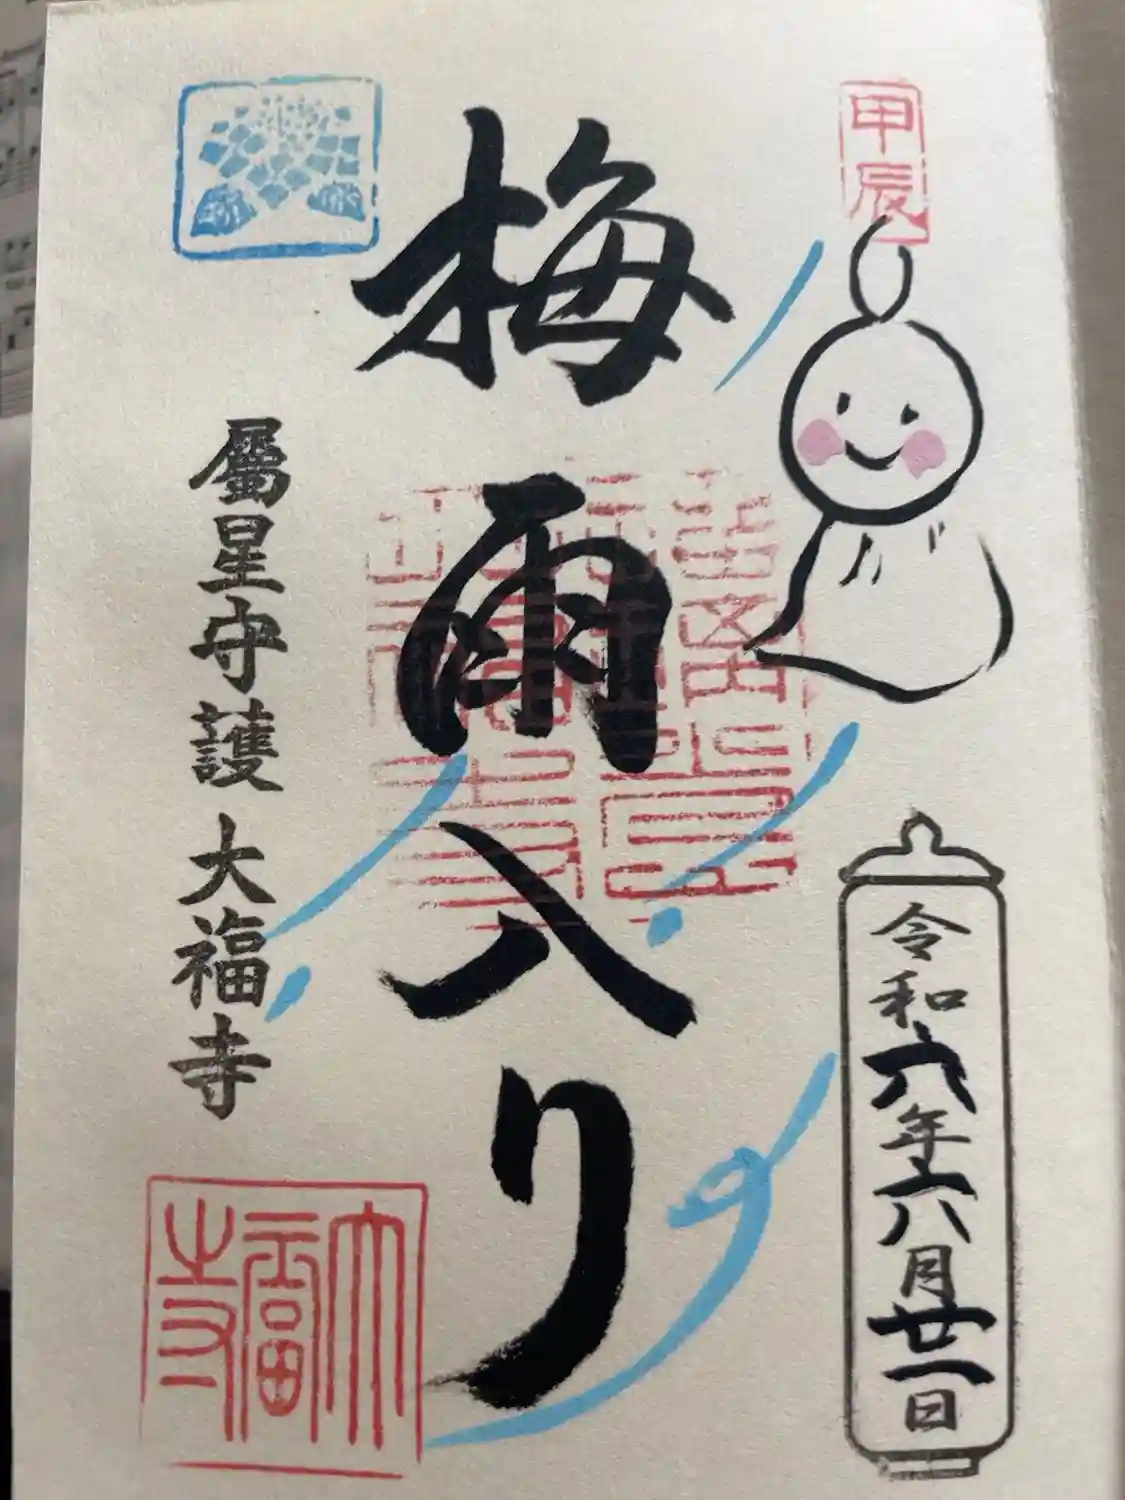 甲辰
令和六年六月廿一日
梅雨入り
屬星守護 大福寺
大福寺